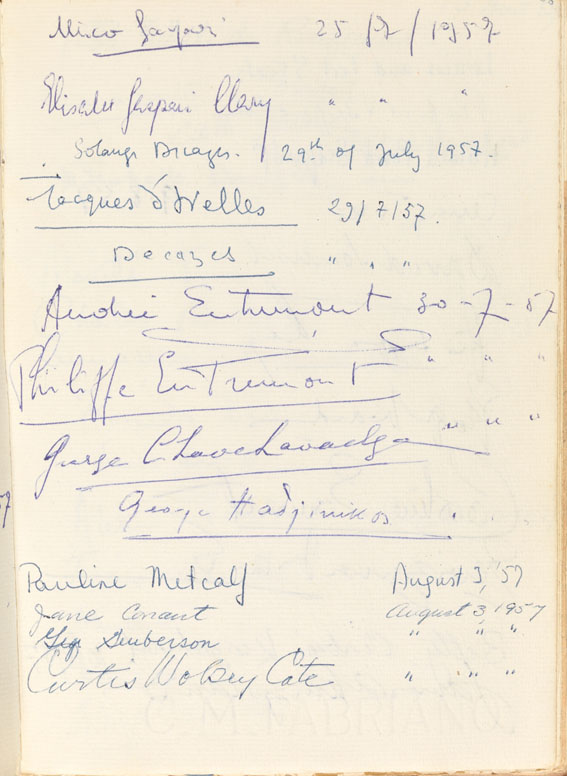 25 /7 / 1957
Elisabeth Gaspari Clary " " "
Solange Decazes. 29th of July 1957.
Jacques d'Welles 29/7/57.
Decazes " " "
Andrée Entremont 30-7-57
Philippe Entremont " " "
George Chavchavadze " " "
George Hadjinikos "
Pauline Metcalf August 3, 57
Jane Conant August 3, 1957
" " "
Curtis Wolsey Cate " " "